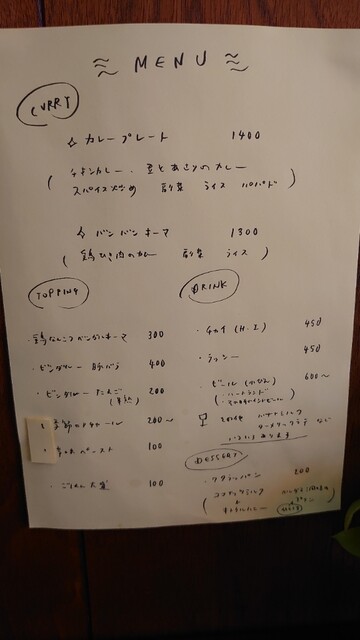 MENU
CURRY
カレープレート 1400
(チキンカレー、豆とあさりのカレー
スパイス炒め 副菜 ライス パパド)
バンバンキーマ 1300
(鶏ひき肉のカレー 副菜 ライス)
TOPPING
・鶏なんこつバンバンキーマ 300
・ビンダルー 豚バラ 400
・ビンダルー たまご (半熟) 200
・季節のアチャール 200〜
ペースト 100
・ごはん大盛 100
DRINK
・チャイ (H.I) 450
・ラッシー 450
・ビール (小びん) 600〜
(・ハートランド
その他 バナナミルク
ターメリックラテ など
いろいろあります
DESSERT
・クタランパン 200
(ココナッツミルク
プリン